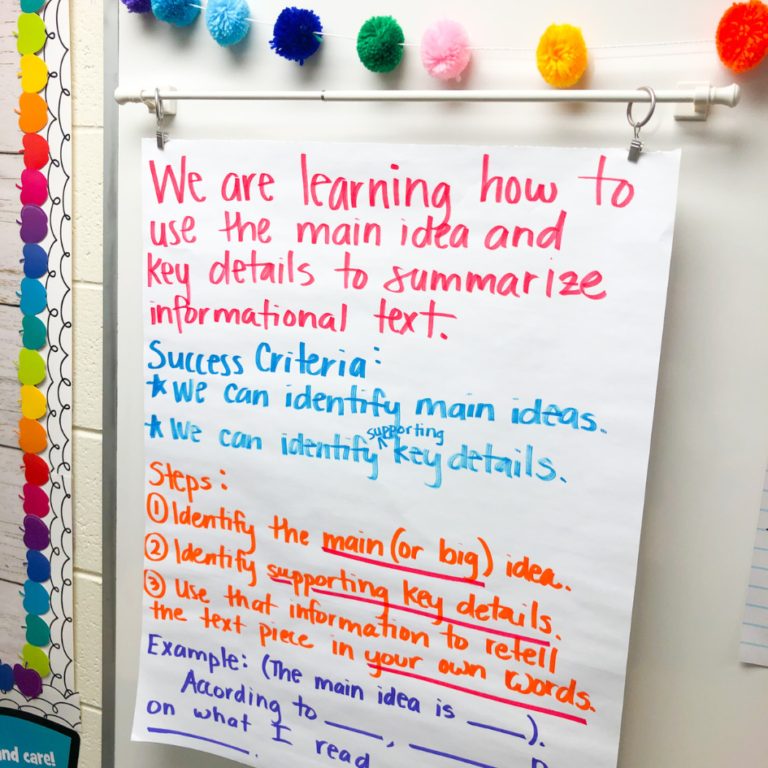 We are learning how to
use the main idea and
key details to summarize
informational text.
Success Criteria:
* We can identify main ideas.
* We can identify supporting key details.
Steps:
① Identify the main (or big) idea.
② Identify supporting key details.
③ Use that information to retell
the text piece in your own words.
Example: (The main idea is ___).
According to ___, ___
on what I read
___.
and care!